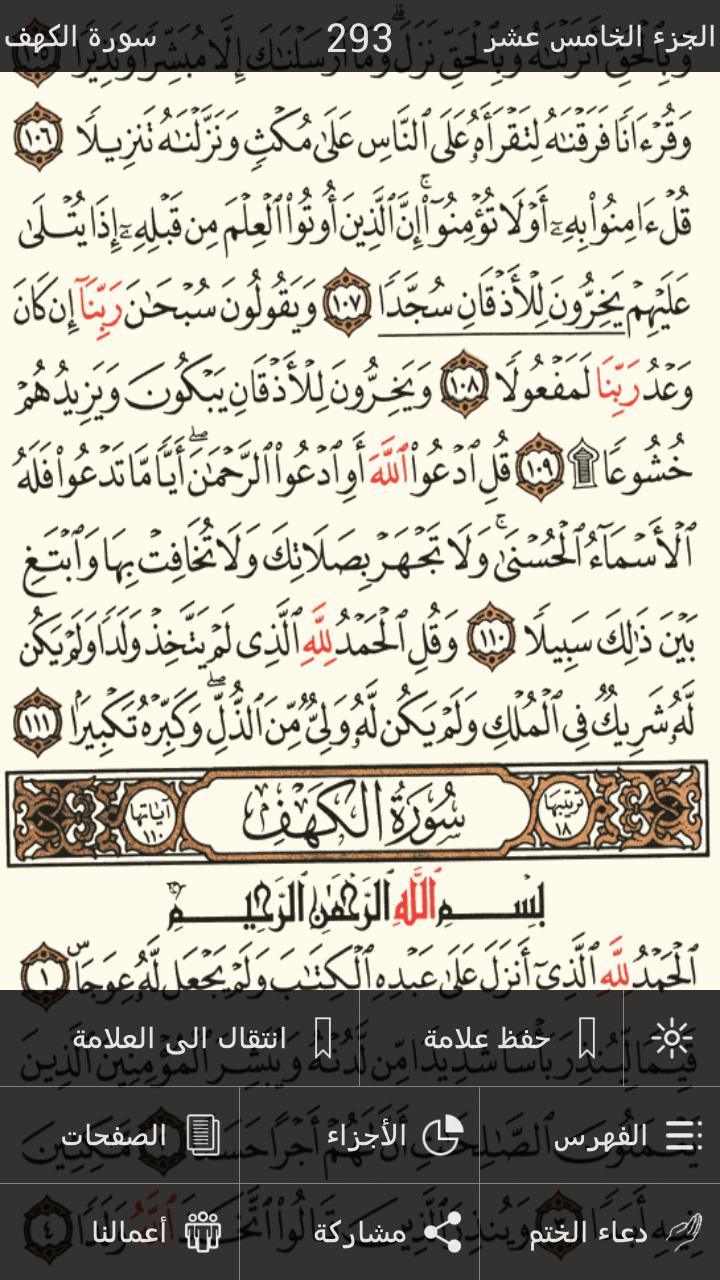 الجزء الخامس عشر 293 سورة الكهف
وَبِالْحَقِّ أَنزَلْنَٰهُ وَبِالْحَقِّ نَزَلَ ۗ وَمَا أَرْسَلْنَٰكَ إِلَّا مُبَشِّرًا وَنَذِيرًا ١٠٥
وَقُرْءَانًا فَرَقْنَٰهُ لِتَقْرَأَهُۥ عَلَى ٱلنَّاسِ عَلَىٰ مُكْثٍ وَنَزَّلْنَٰهُ تَنزِيلًا ١٠٦
قُلْ ءَامِنُوا۟ بِهِۦٓ أَوْ لَا تُؤْمِنُوٓا۟ ۚ إِنَّ ٱلَّذِينَ أُوتُوا۟ ٱلْعِلْمَ مِن قَبْلِهِۦٓ إِذَا يُتْلَىٰ
عَلَيْهِمْ يَخِرُّونَ لِلْأَذْقَانِ سُجَّدًا ١٠٧ وَيَقُولُونَ سُبْحَٰنَ رَبِّنَآ إِن كَانَ
وَعْدُ رَبِّنَا لَمَفْعُولًا ١٠٨ وَيَخِرُّونَ لِلْأَذْقَانِ يَبْكُونَ وَيَزِيدُهُمْ
خُشُوعًا ۩ ١٠٩ قُلِ ٱدْعُوا۟ ٱللَّهَ أَوِ ٱدْعُوا۟ ٱلرَّحْمَٰنَ ۖ أَيًّا مَّا تَدْعُوا۟ فَلَهُ
ٱلْأَسْمَآءُ ٱلْحُسْنَىٰ ۚ وَلَا تَجْهَرْ بِصَلَاتِكَ وَلَا تُخَافِتْ بِهَا وَٱبْتَغِ
بَيْنَ ذَٰلِكَ سَبِيلًا ١١٠ وَقُلِ ٱلْحَمْدُ لِلَّهِ ٱلَّذِى لَمْ يَتَّخِذْ وَلَدًا وَلَمْ يَكُن
لَّهُۥ شَرِيكٌ فِى ٱلْمُلْكِ وَلَمْ يَكُن لَّهُۥ وَلِىٌّ مِّنَ ٱلذُّلِّ ۖ وَكَبِّرْهُ تَكْبِيرًۢا ١١١
ترتيبها ١٨ سُورَةُ الكَهْفِ آياتها ١١٠
بِسْمِ ٱللَّهِ ٱلرَّحْمَٰنِ ٱلرَّحِيمِ
ٱلْحَمْدُ لِلَّهِ ٱلَّذِىٓ أَنزَلَ عَلَىٰ عَبْدِهِ ٱلْكِتَٰبَ وَلَمْ يَجْعَل لَّهُۥ عِوَجَاۜ ١
قَيِّمًا لِّيُنذِرَ بَأْسًا شَدِيدًا مِّن لَّدُنْهُ وَيُبَشِّرَ ٱلْمُؤْمِنِينَ ٱلَّذِينَ
حفظ علامة انتقال الى العلامة
الفهرس الأجزاء الصفحات
دعاء الختم مشاركة أعمالنا